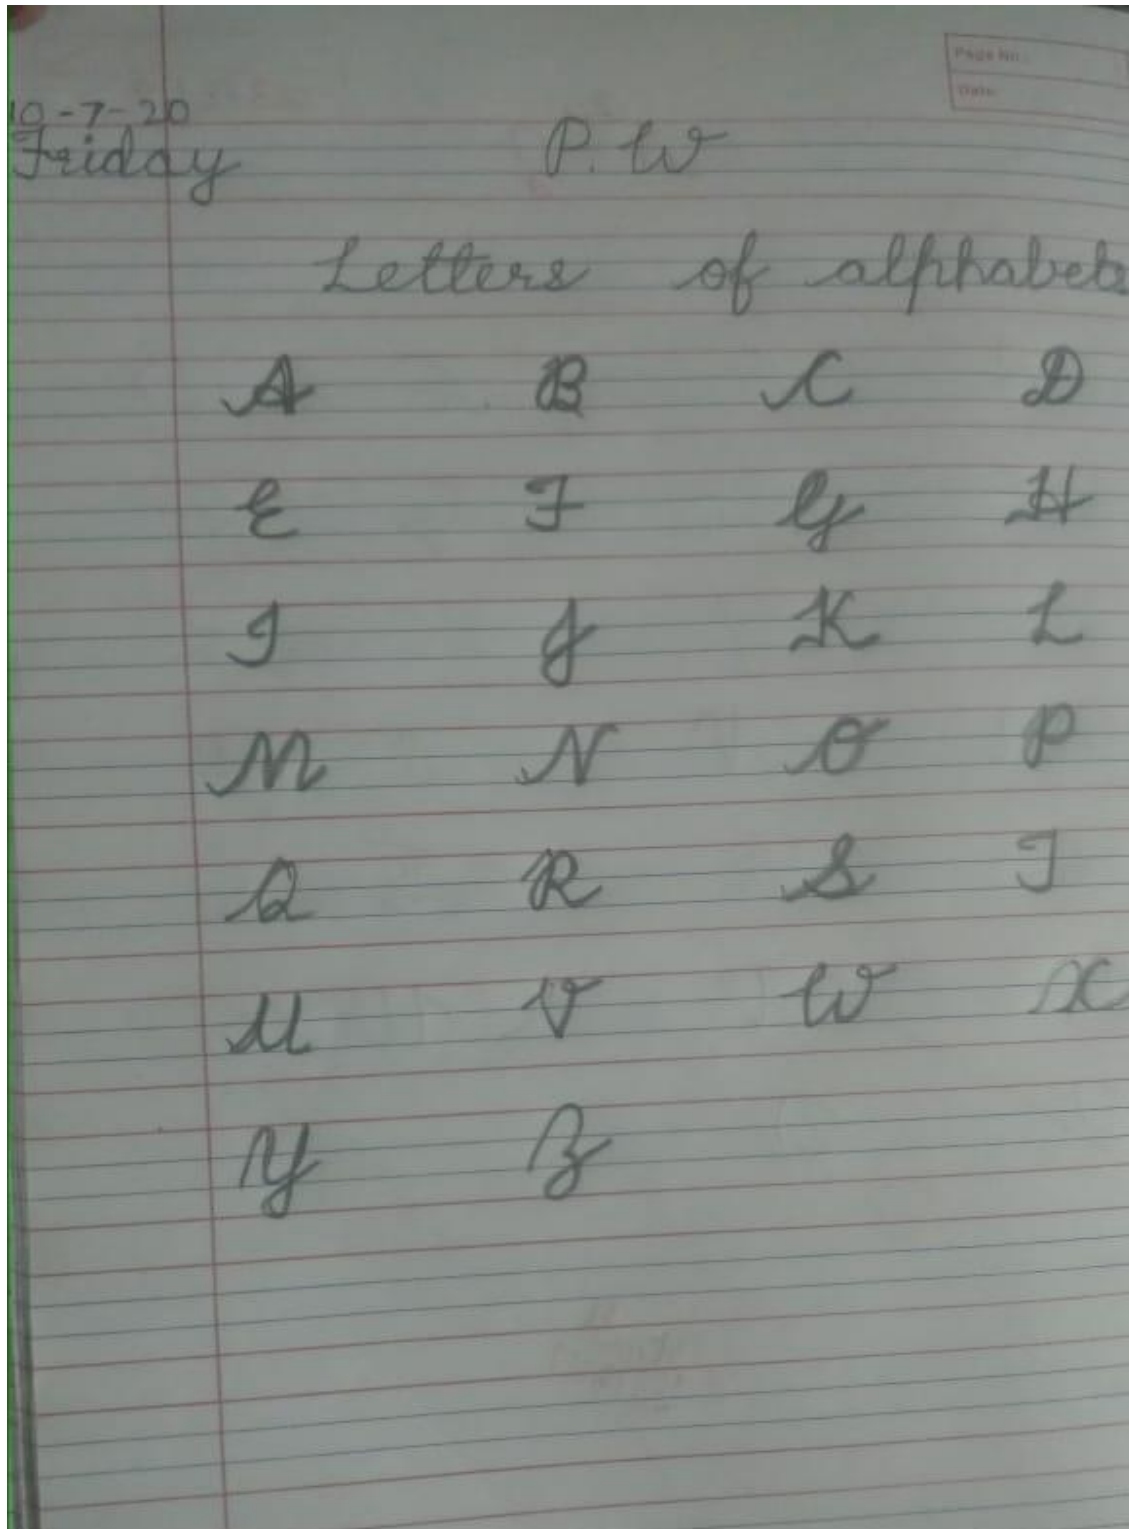 Page No.:
Date:
10-7-20
Friday P.W
Letters of alphabets
A B C D
E F G H
I J K L
M N O P
Q R S T
U V W X
Y Z